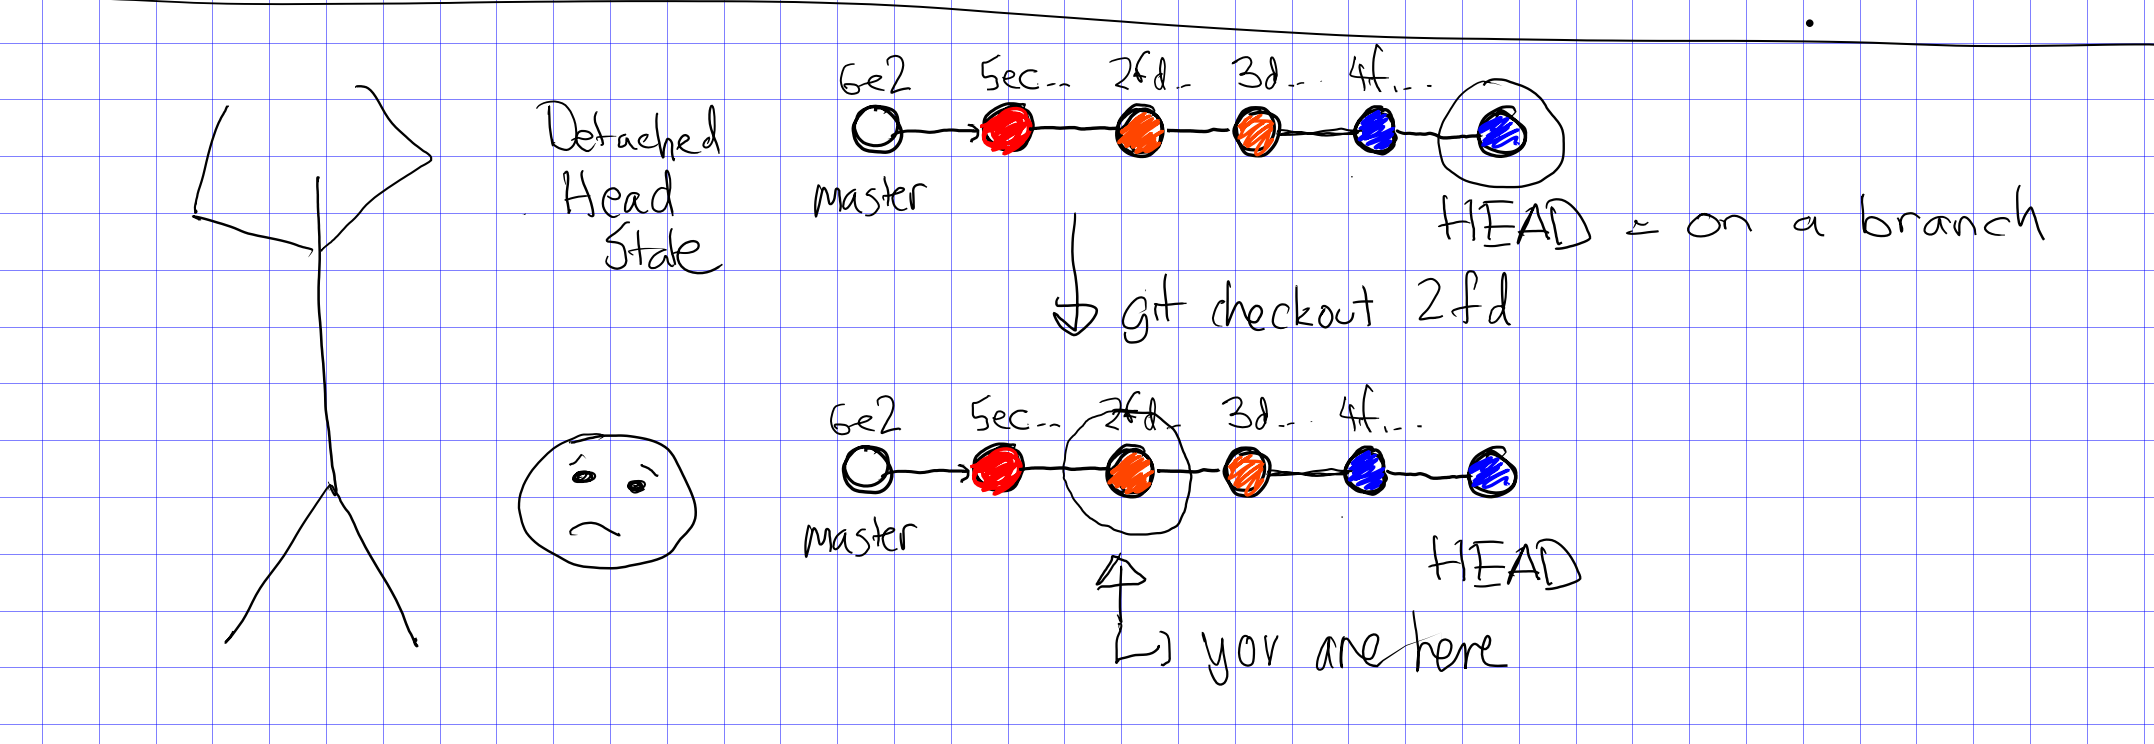 Detached
Head
State
6e2 5ec... 2fd.. 3d... 4f....
master
HEAD = on a branch
git checkout 2fd
6e2 5ec... 2fd.. 3d... 4f....
master
HEAD
you are here